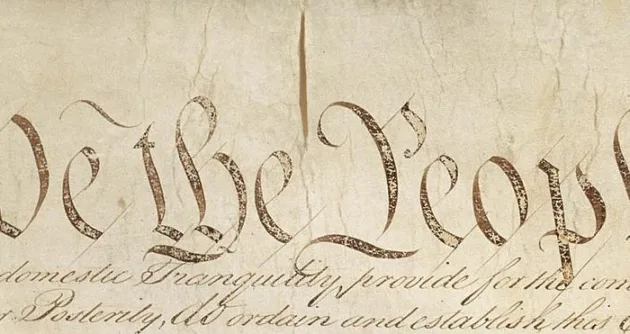 We the Peop
domestic Tranquility, provide for the com
r Posterity, do ordain and establish this